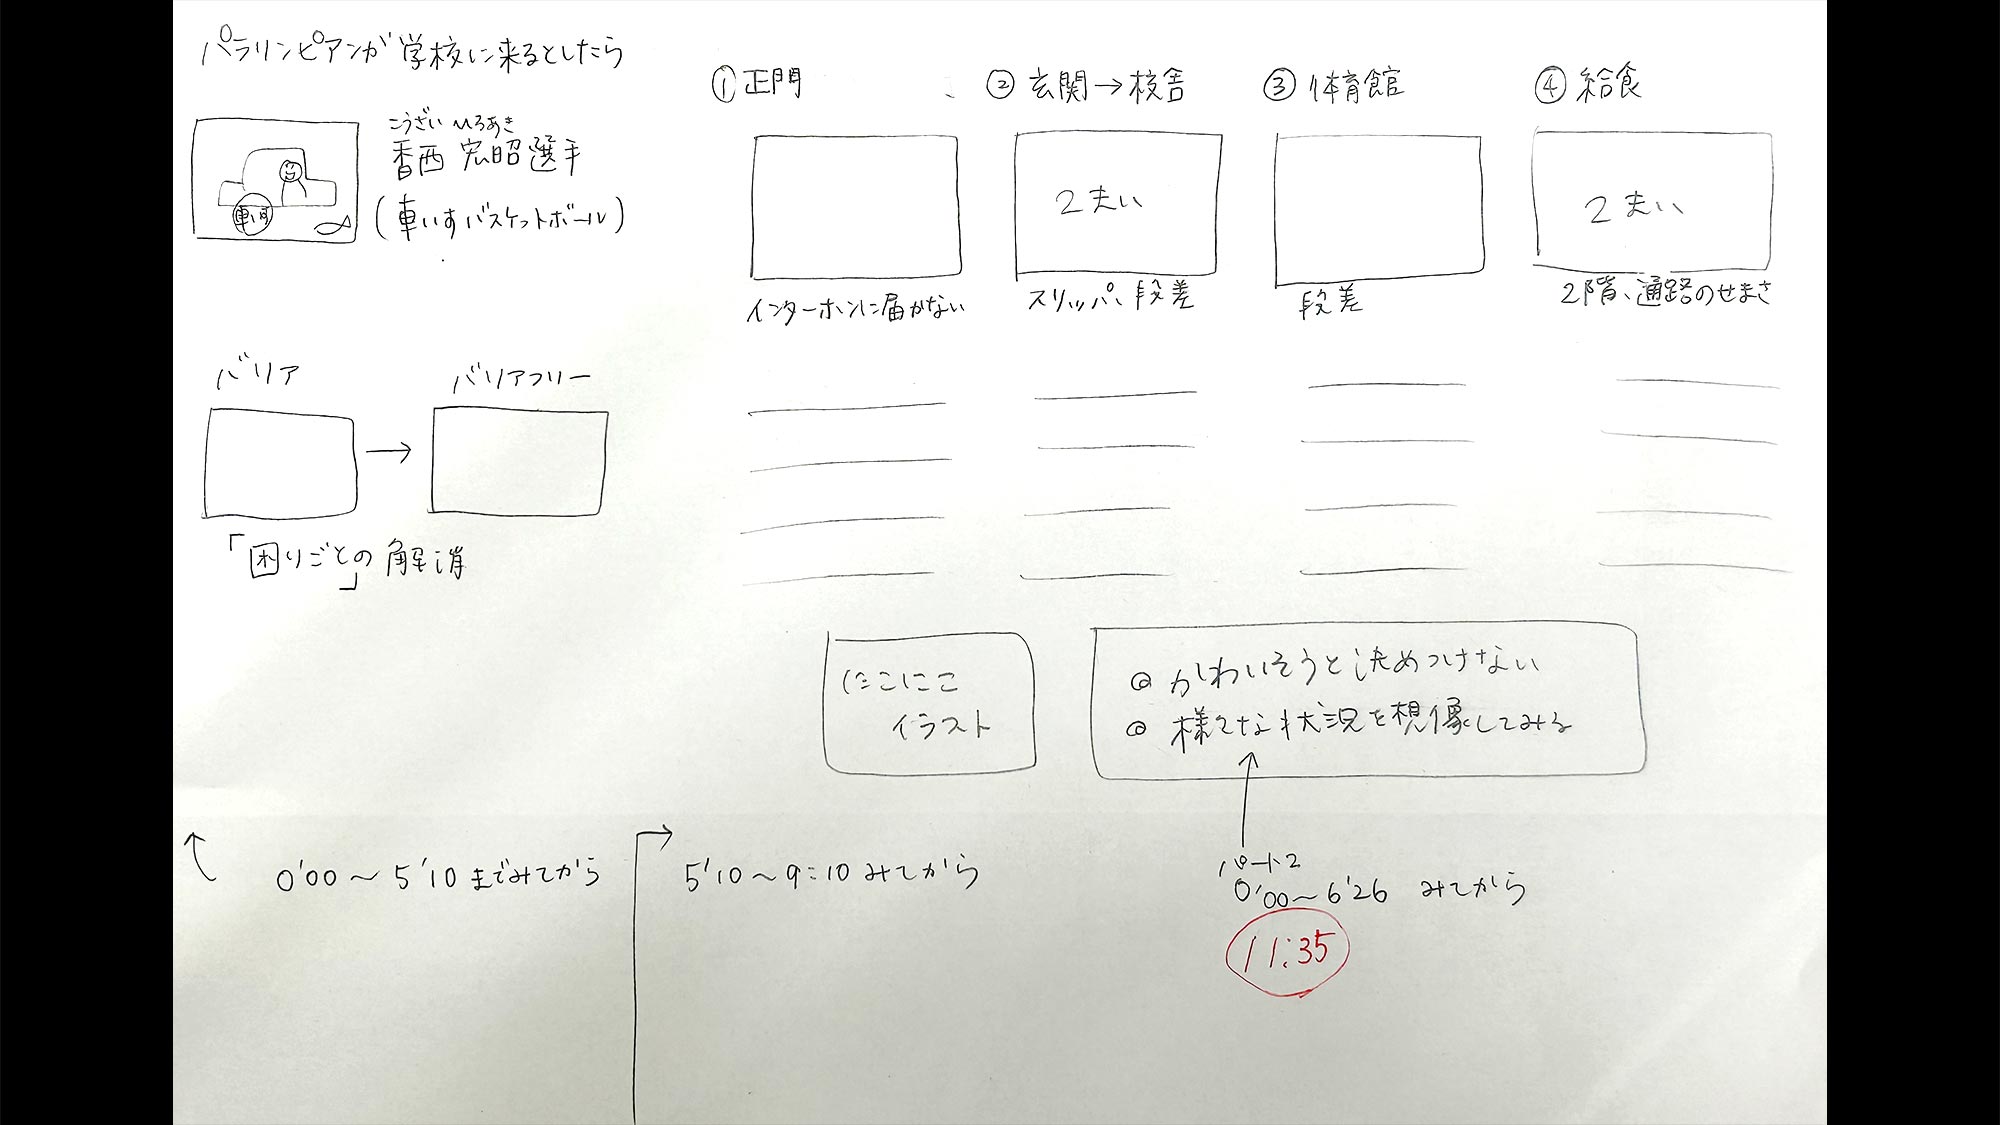 パラリンピアンが学校に来るとしたら
こうざい ひろあき
香西 宏昭選手
(車いすバスケットボール)
車いす
バリア
→
バリアフリー
「困りごとの」解消
①正門
インターホンに届かない
②玄関→校舎
2まい
スリッパ、段差
③体育館
段差
④給食
2まい
2階、通路のせまさ
にこにこ
イラスト
◎かわいそうと決めつけない
◎様々な状況を想像してみる
0'00～5'10までみてから
5'10～9:10みてから
パート2
0'00～6'26 みてから
11:35